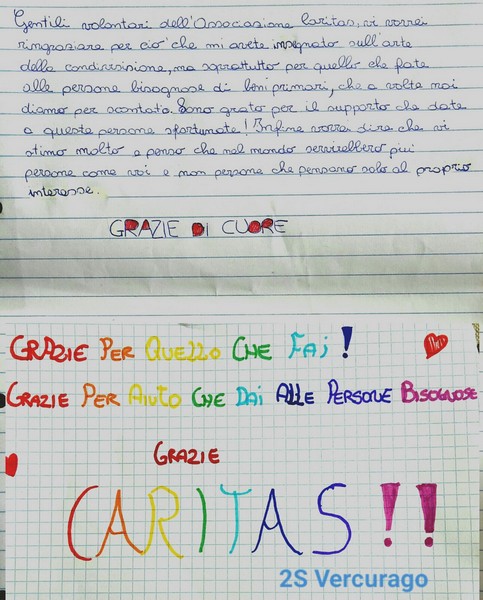 Gentili volontari dell'Associazione Caritas, vi vorrei
ringraziare per ciò che mi avete insegnato sull'arte
della condivisione, ma soprattutto per quello che fate
alle persone bisognose di beni primari, che a volte noi
diamo per scontato. Sono grato per il supporto che date
a queste persone sfortunate! Infine vorrei dire che vi
stimo molto e penso che nel mondo servirebbero più
persone come voi e non persone che pensano solo al proprio
interesse.
GRAZIE DI CUORE
GRAZIE PER QUELLO CHE FAI!
GRAZIE PER AIUTO CHE DAI ALLE PERSONE BISOGNOSE
GRAZIE
CARITAS!!
2S Vercurago